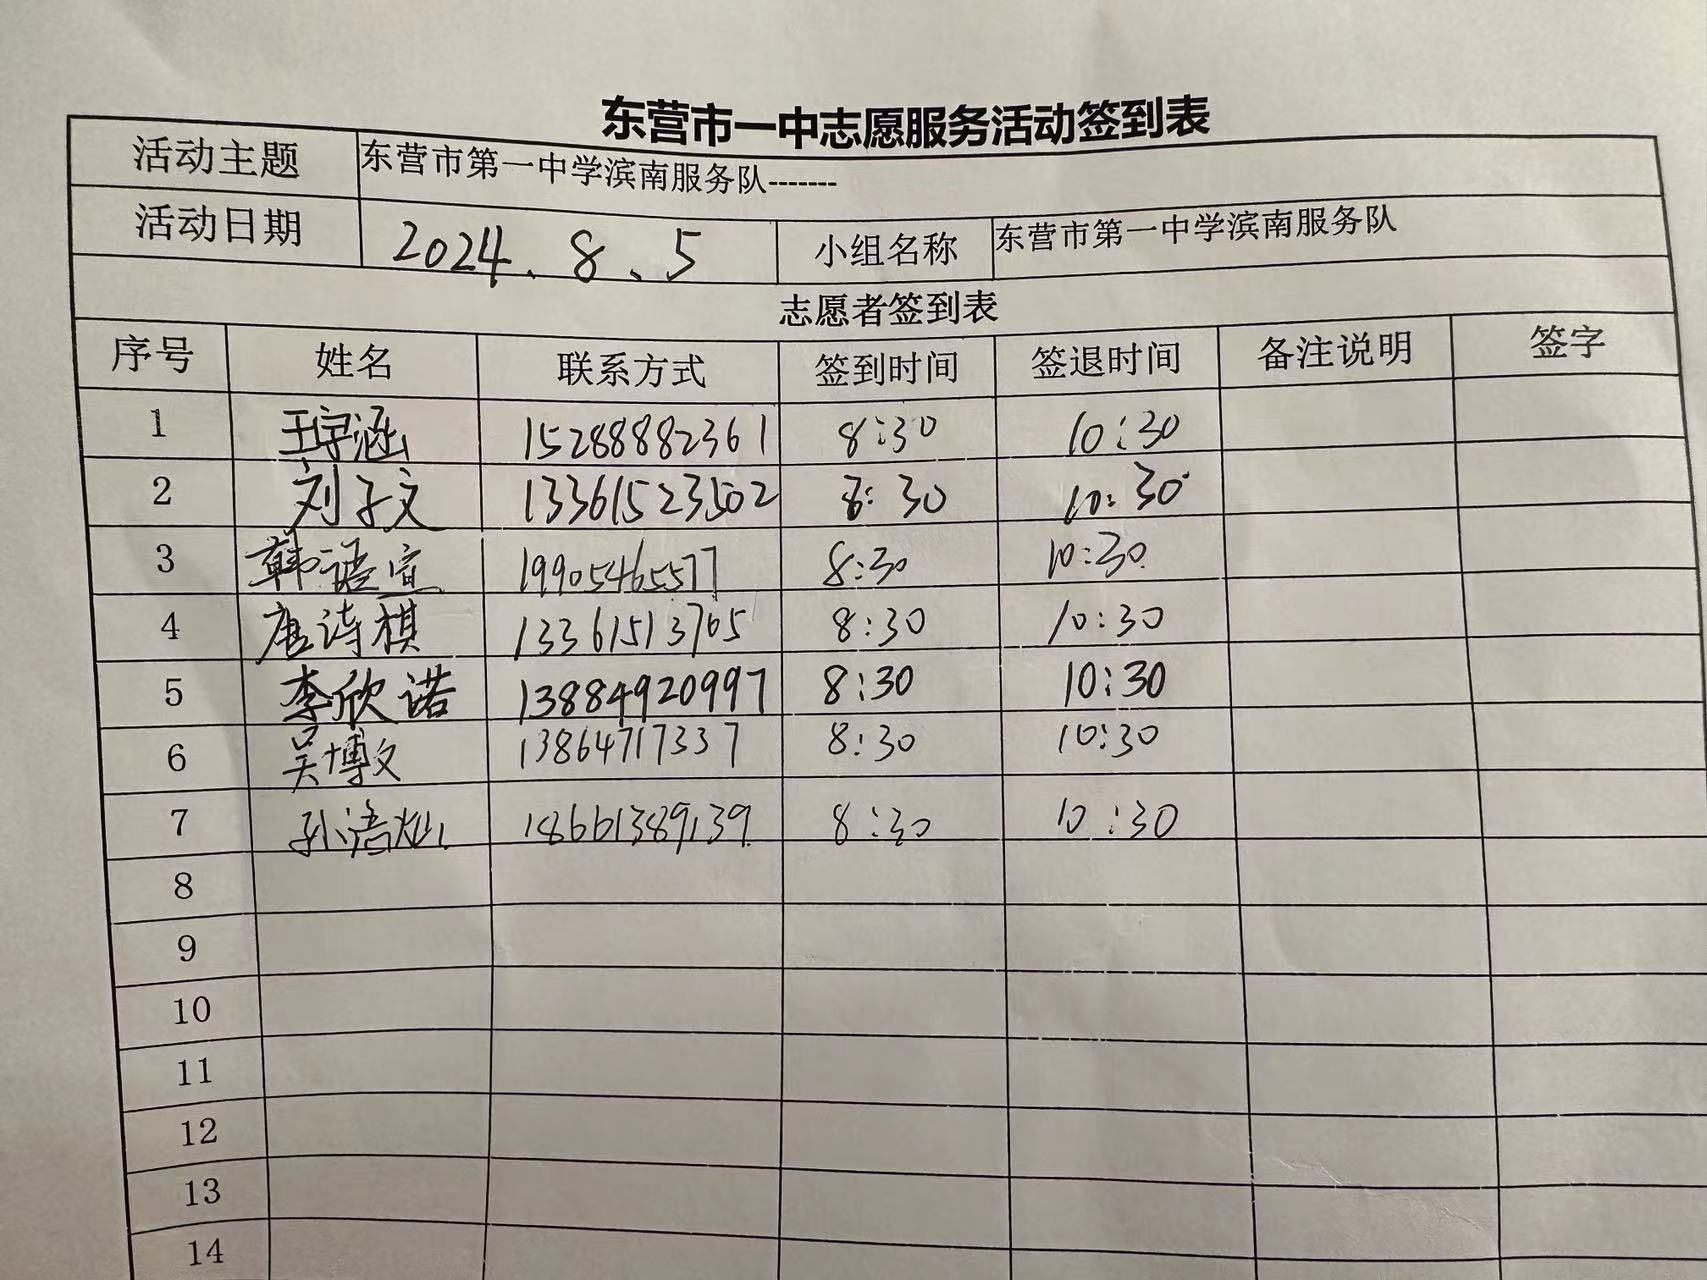 东营市一中志愿服务活动签到表
活动主题 东营市第一中学滨南服务队-------
活动日期 2024.8.5 小组名称 东营市第一中学滨南服务队
志愿者签到表
序号 姓名 联系方式 签到时间 签退时间 备注说明 签字
1 王宇涵 15288882361 8:30 10:30
2 刘子文 13361523502 8:30 10:30
3 韩语宣 19905465577 8:30 10:30
4 唐诗棋 13361513765 8:30 10:30
5 李欣诺 13884920997 8:30 10:30
6 吴博文 13864717337 8:30 10:30
7 孙浩灿 18661389139 8:30 10:30
8
9
10
11
12
13
14